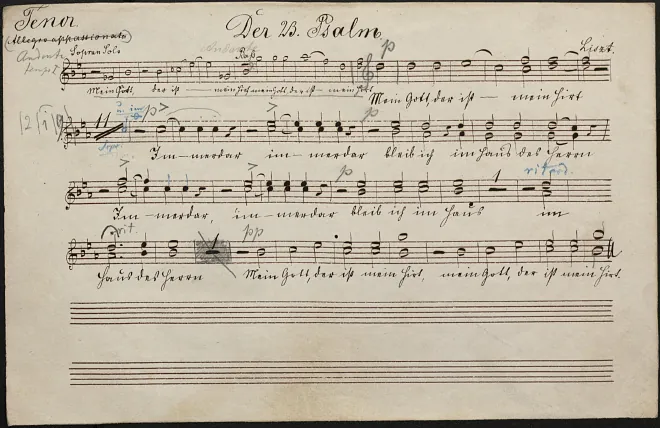 Tenor.
Der 23. Psalm.
Allegro appassionato
Sopran Solo
Andante
p
Liszt.
Mein Gott, der ist — mein Hirt mein Gott, der ist — mein Hirt
Mein Gott, der ist — mein Hirt
11
p >
Im-merdar im-merdar bleib ich im Haus des Herrn
p
1
rit.
Im-merdar, im-merdar bleib ich im Haus im
rit.
1
pp
Haus des Herrn Mein Gott, der ist mein Hirt, mein Gott, der ist mein Hirt.